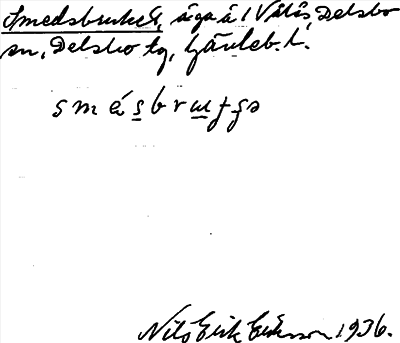 Smedsbruket, äga å 1 Våtås, Delsbo
sn, Delsbo tg, Gävleb. l.
s m é s b r u t
Nils Erik Eriksson 1936.